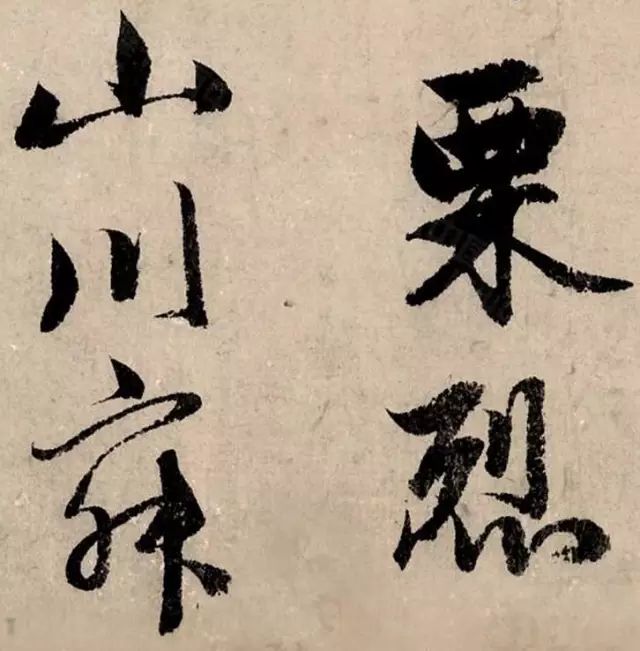 栗烈
山川寂